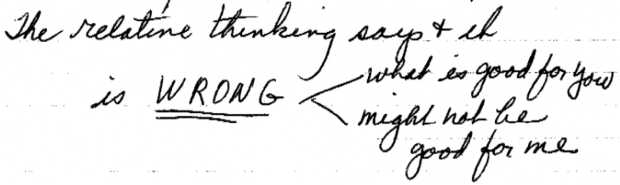 The relative thinking says & it
is WRONG
what is good for you
might not be
good for me